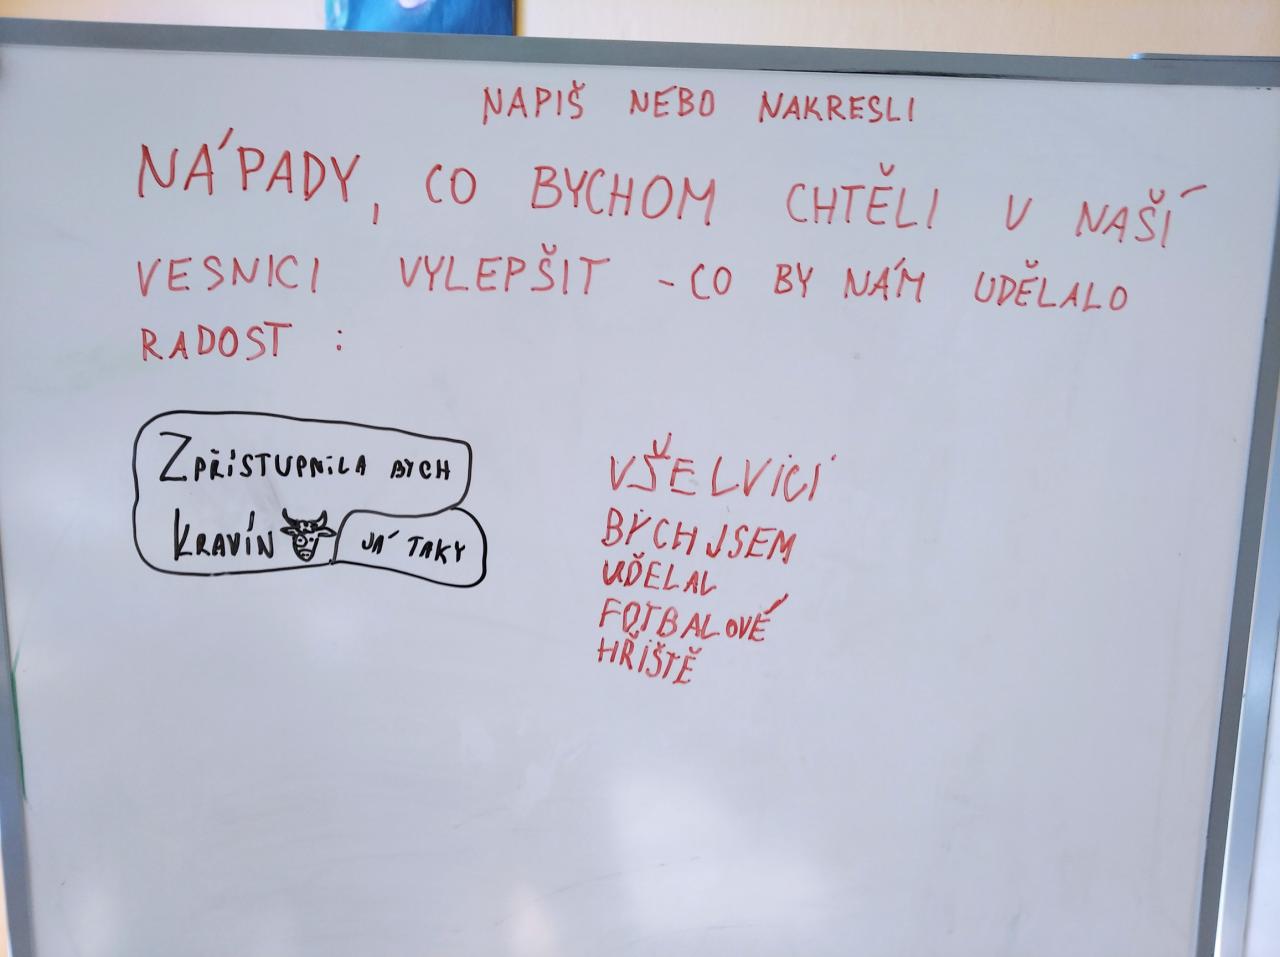 NAPIŠ NEBO NAKRESLI
NÁPADY, CO BYCHOM CHTĚLI V NAŠÍ
VESNICI VYLEPŠIT - CO BY NÁM UDĚLALO
RADOST :
ZPŘÍSTUPNILA BYCH
KRAVÍN
JÁ TAKY
VŠELVICI
BYCH JSEM
UDĚLAL
FOTBALOVÉ
HŘIŠTĚ